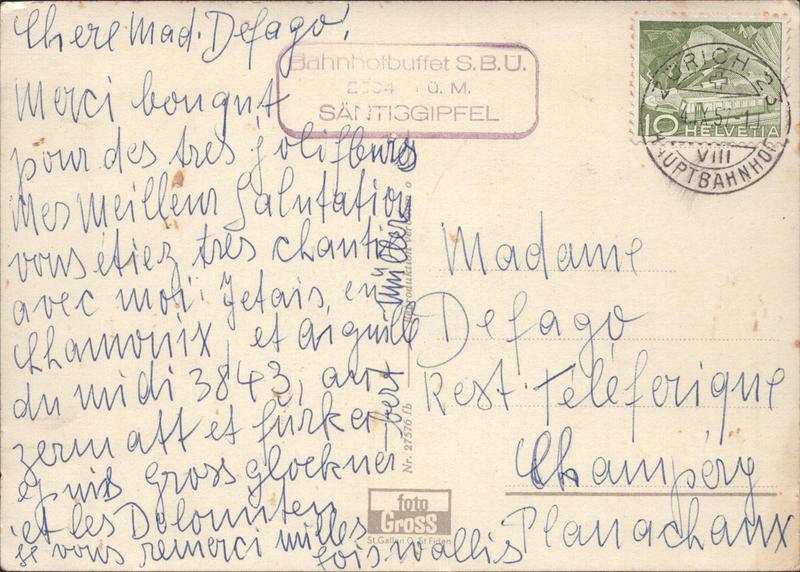 Chere Mad. Defago!
Merci bouqut
pour des tres Jolifleurs
Mes Meilleur Salutation
vous étiez très chanti
avec moi. Jetais, en
Chamonix, et aiguille
du midi 3843, au
Zermatt et furka
epuis Grossglockner
et les Dolomiten
je vous remerci milles
fois Wallis
Müller
Bahnhofbuffet S.B.Ü.
ü. M.
SÄNTISGIPFEL
10 HELVETIA
ZÜRICH 23
VIII
HAUPTBAHNHOF
Madame
Defago
Rest. Téléferique
Champéry
Planachaux
Nr. 27576 fb
foto
Gross
St. Gallen O, St. Fiden